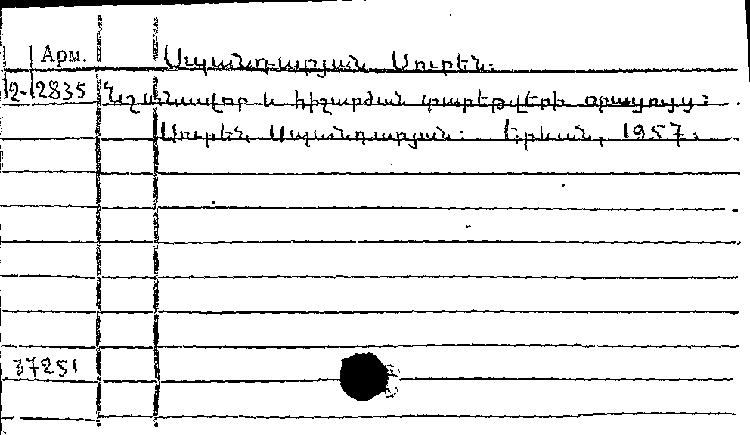 Арм. Սպանդարյան Սուրեն.
2-12835 Նշանավոր և հիշարժան տարեթվերի օրացույց:
Սուրեն Սպանդարյան: Երևան, 1957.
37251